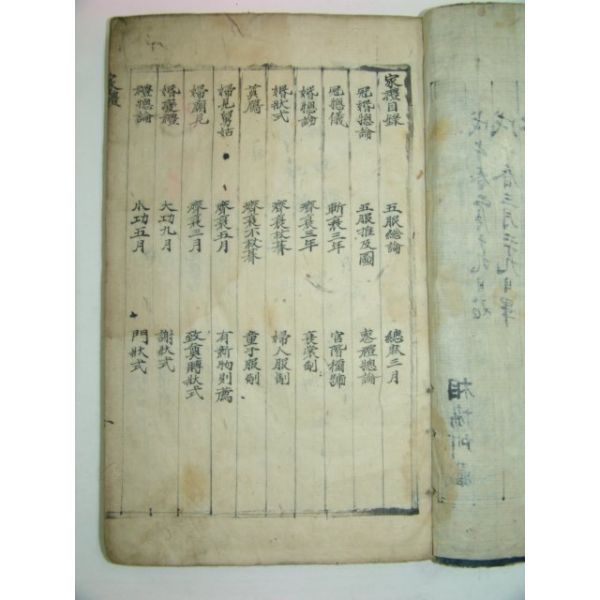 家禮目錄 五服總論 緦麻三月
冠婚總論 五服推及圖 喪禮總論
冠總儀 斬衰三年 官階稱號
婚總論 齊衰三年 衰裳制
婚狀式 齊衰杖朞 婦人服制
奠鴈 齊衰不杖朞 童子服制
婦見舅姑 齊衰五月 有新物則薦
婦廟見 齊衰三月 致奠賻狀式
婚變禮 大功九月 謝狀式
禮總論 小功五月 門狀式
家禮